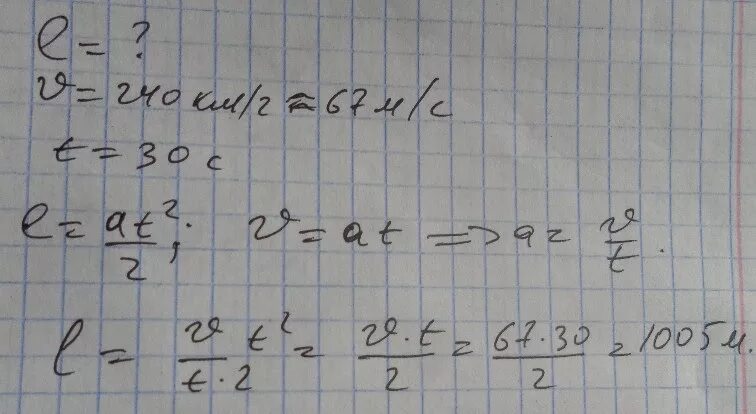 l = ?
v = 240 км/г ≈ 67 м/с
t = 30 с
l = at²/2; v = at => a = v/t.
l = v/(t·2) t² = v·t/2 = 67·30/2 = 1005 м.